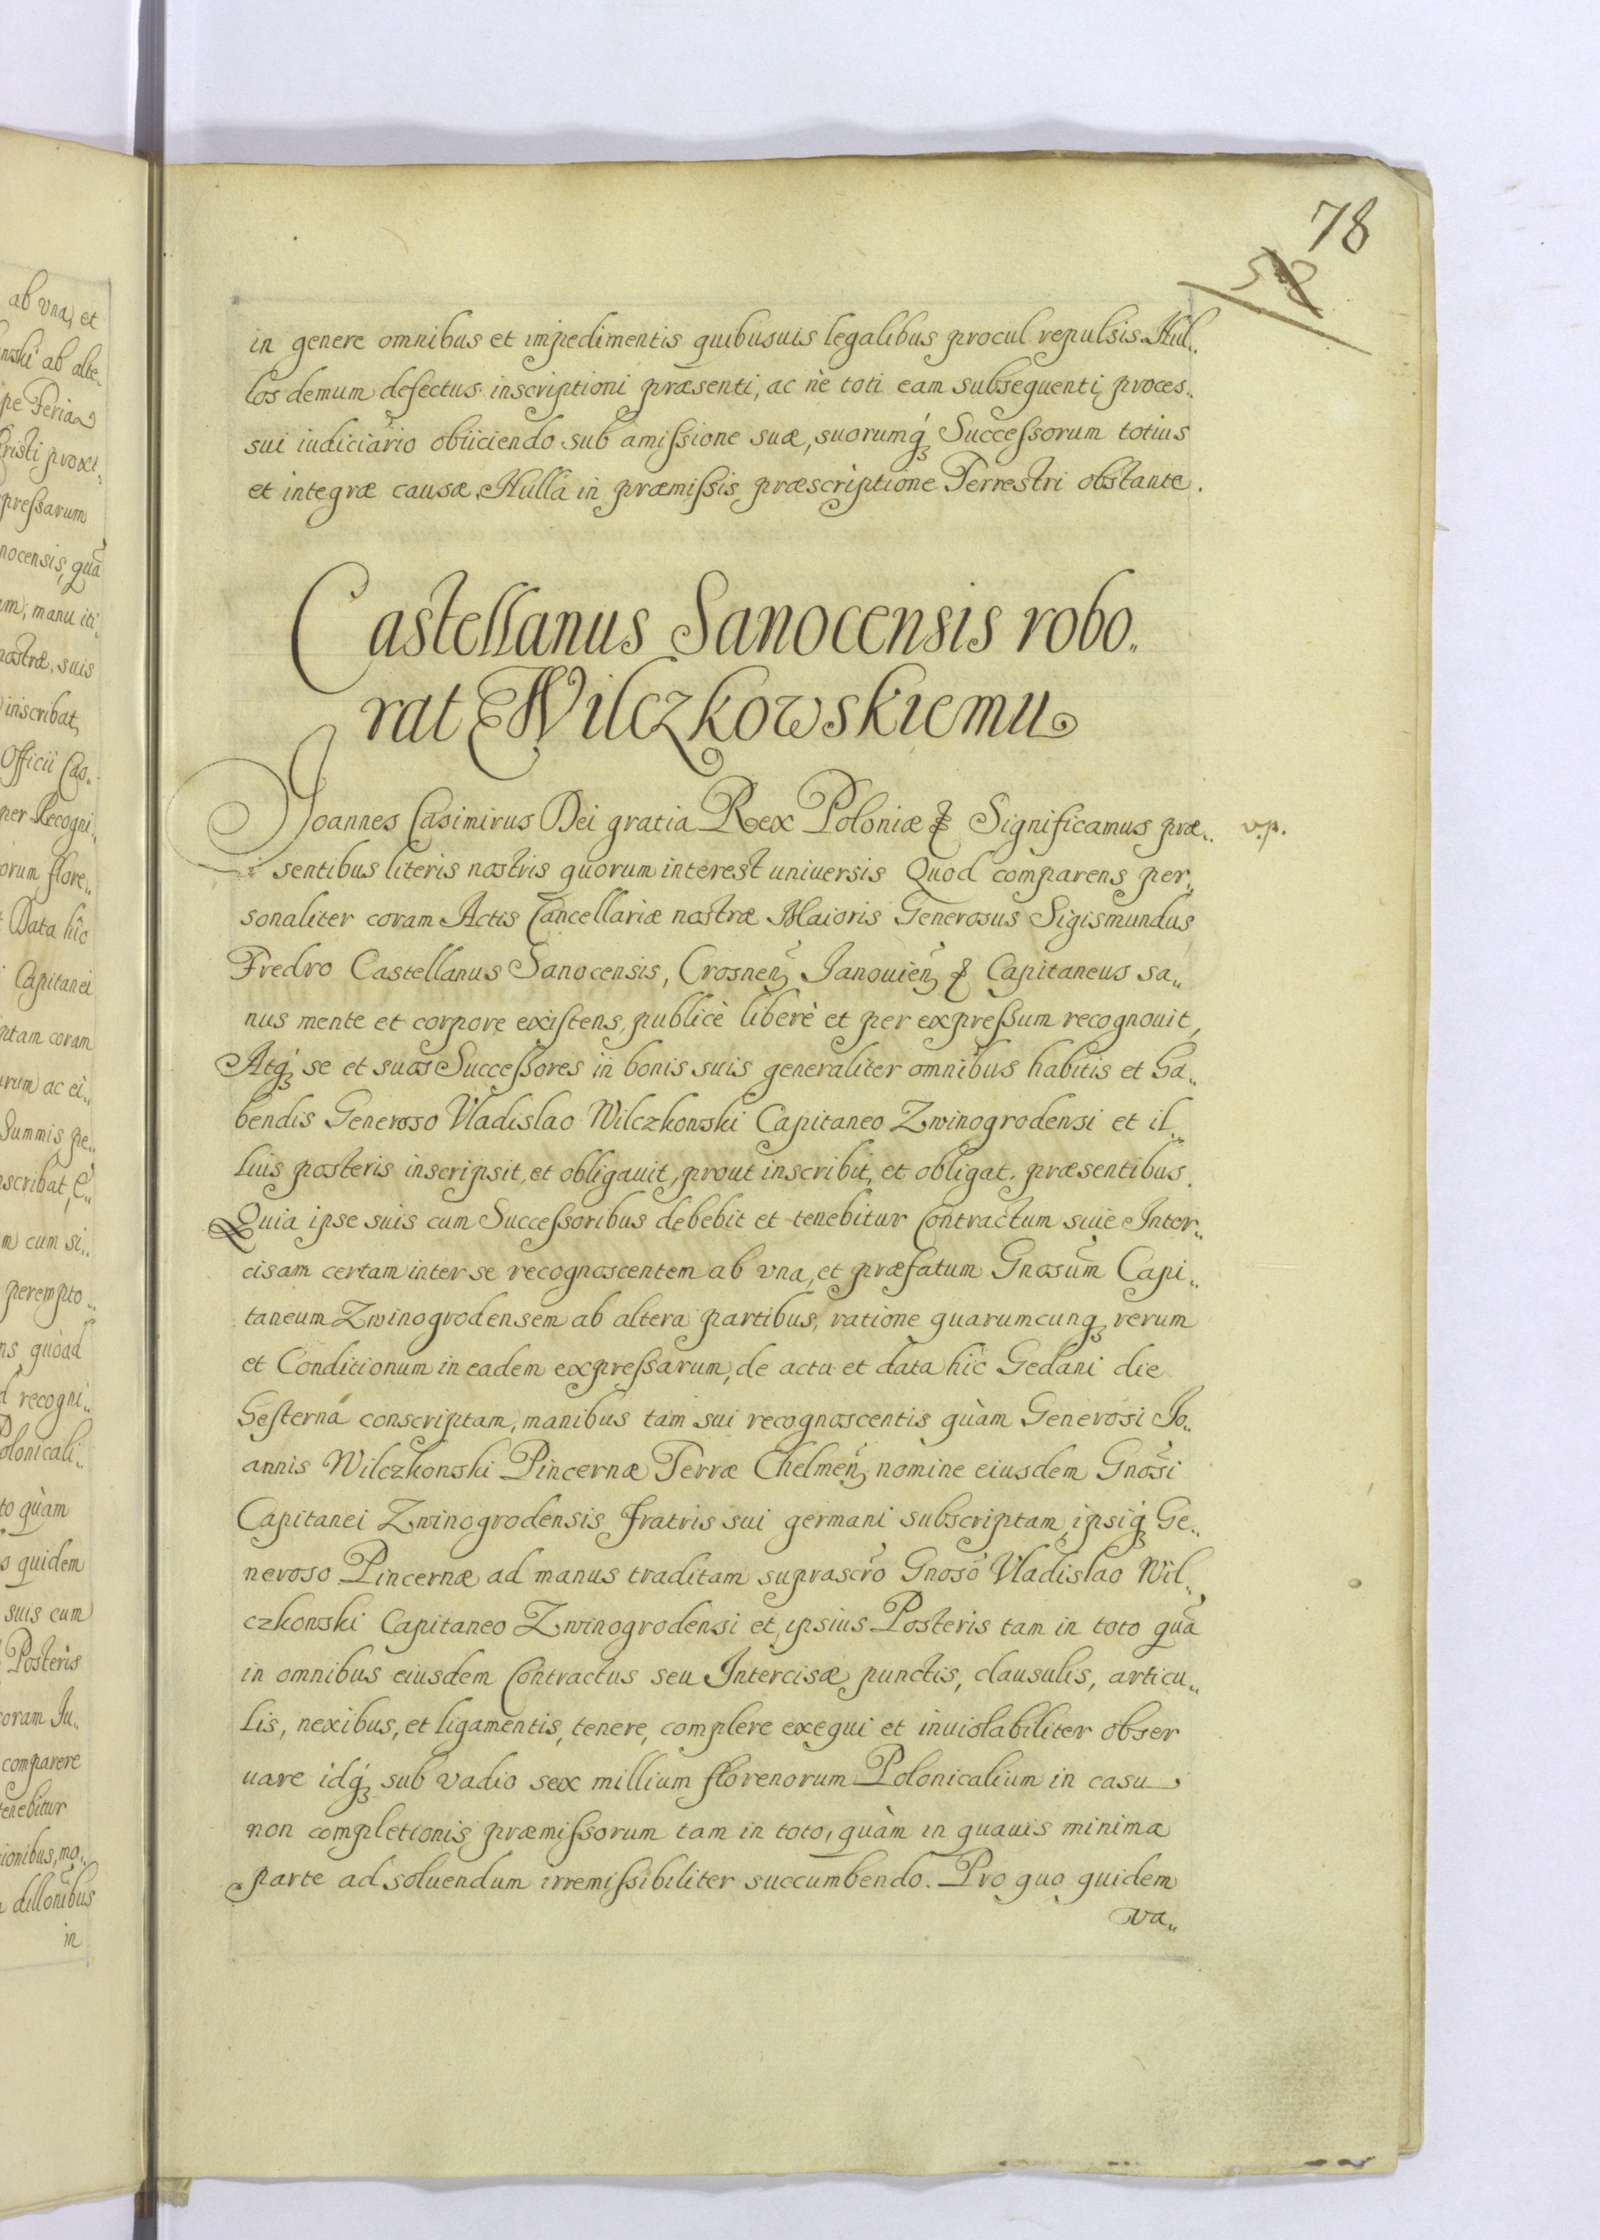 78
52
in genere omnibus et impedimentis quibusuis legalibus procul repulsis. Nul„
los demum defectus inscriptioni præsenti, ac nè toti eam subsequenti proces„
sui iudiciario obiiciendo sub amißione suæ, suorumq́ꝫ Succeßorum totius
et integræ causæ. Nullâ in præmißis præscriptione Terrestri obstante.
Castellanus Sanocensis robo„
rat Wilczkowskiemu
Joannes Casimirus Dei gratia Rex Poloniæ & Significamus præ„ v.p.
sentibus literis nostris quorum interest uniuersis Quod comparens per„
sonaliter coram Actis Cancellariæ nostræ Maioris Generosus Sigismundus
Fredro Castellanus Sanocensis, Crosneñ Janouieñ & Capitaneus sa„
nus mente et corpore existens, publicè liberè et per expreßum recognouit,
Atq́ꝫ se et suos Succeßores in bonis suis generaliter omnibus habitis et ha„
bendis Generoso Vladislao Wilczkowski Capitaneo Zwinogrodensi et il„
lius posteris inscripsit, et obligauit, prout inscribit, et obligat præsentibus.
Quia ipse suis cum Succeßoribus debebit et tenebitur Contractum siue Inter„
cisam certam inter se recognoscentem ab vna, et præfatum Gnosum̃ Capi„
taneum Zwinogrodensem ab altera partibus, ratione quarumcunqꝫ rerum
et Conditionum in eadem expreßarum, de actu et data hîc Gedani die
hesternâ conscriptam, manibus tam sui recognoscentis quàm Generosi Jo„
annis Wilczkowski Pincernæ Terræ Chelmeñ nomine eiusdem Gnosi
Capitanei Zwinogrodensis fratris sui germani subscriptam, ipsiq́ꝫ Ge„
neroso Pincernæ ad manus traditam suprascr̃o Gnoso Vladislao Wil„
czkowski Capitaneo Zwinogrodensi et ipsius Posteris tam in toto quã
in omnibus eiusdem Contractus seu Intercisæ punctis, clausulis, articu„
lis, nexibus, et ligamentis, tenere, complere exequi et inuiolabiliter obser
uare idq́ꝫ sub vadio sex millium florenorum Polonicalium in casu
non completionis præmißorum tam in toto, quàm in quauis minima
parte ad soluendum irremißibiliter succumbendo. Pro quo quidem
va„